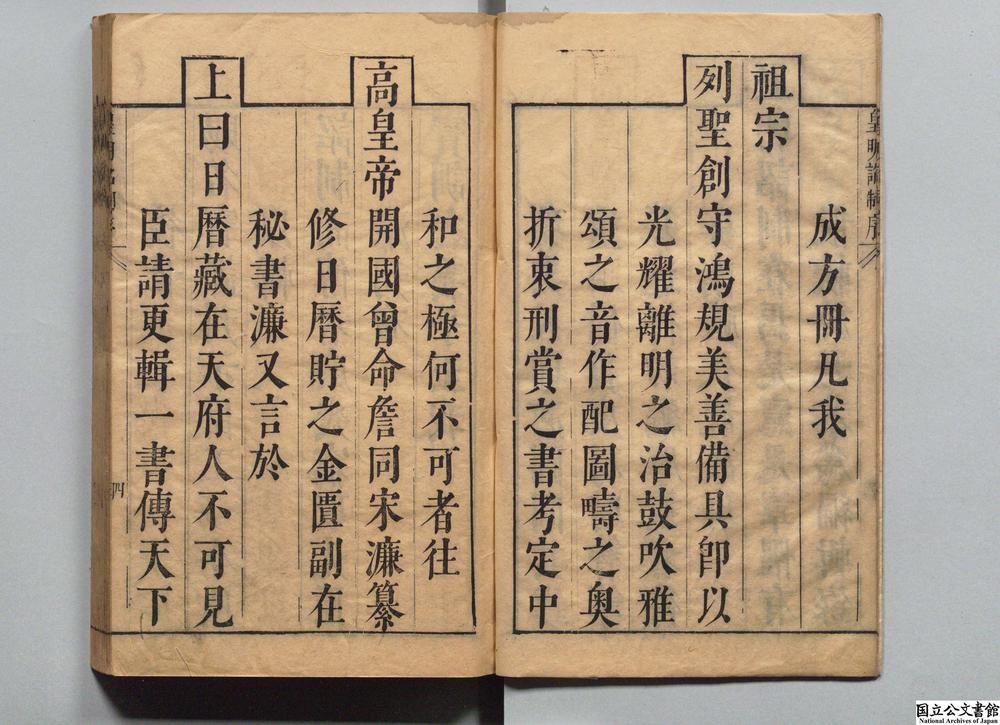 成方冊凡我
祖宗
列聖創守鴻規美善備具卽以
光耀離明之治鼓吹雅
頌之音作配圖疇之奧
折衷刑賞之書考定中
和之極何不可者往
高皇帝開國曾命詹同宋濂纂
修日曆貯之金匱副在
秘書濂又言於
上曰日曆藏在天府人不可見
臣請更輯一書傳天下
皇明詔制序
四
国立公文書館
National Archives of Japan